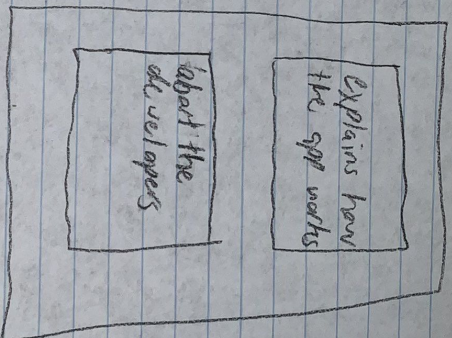 explains how
the app works
about the
developers